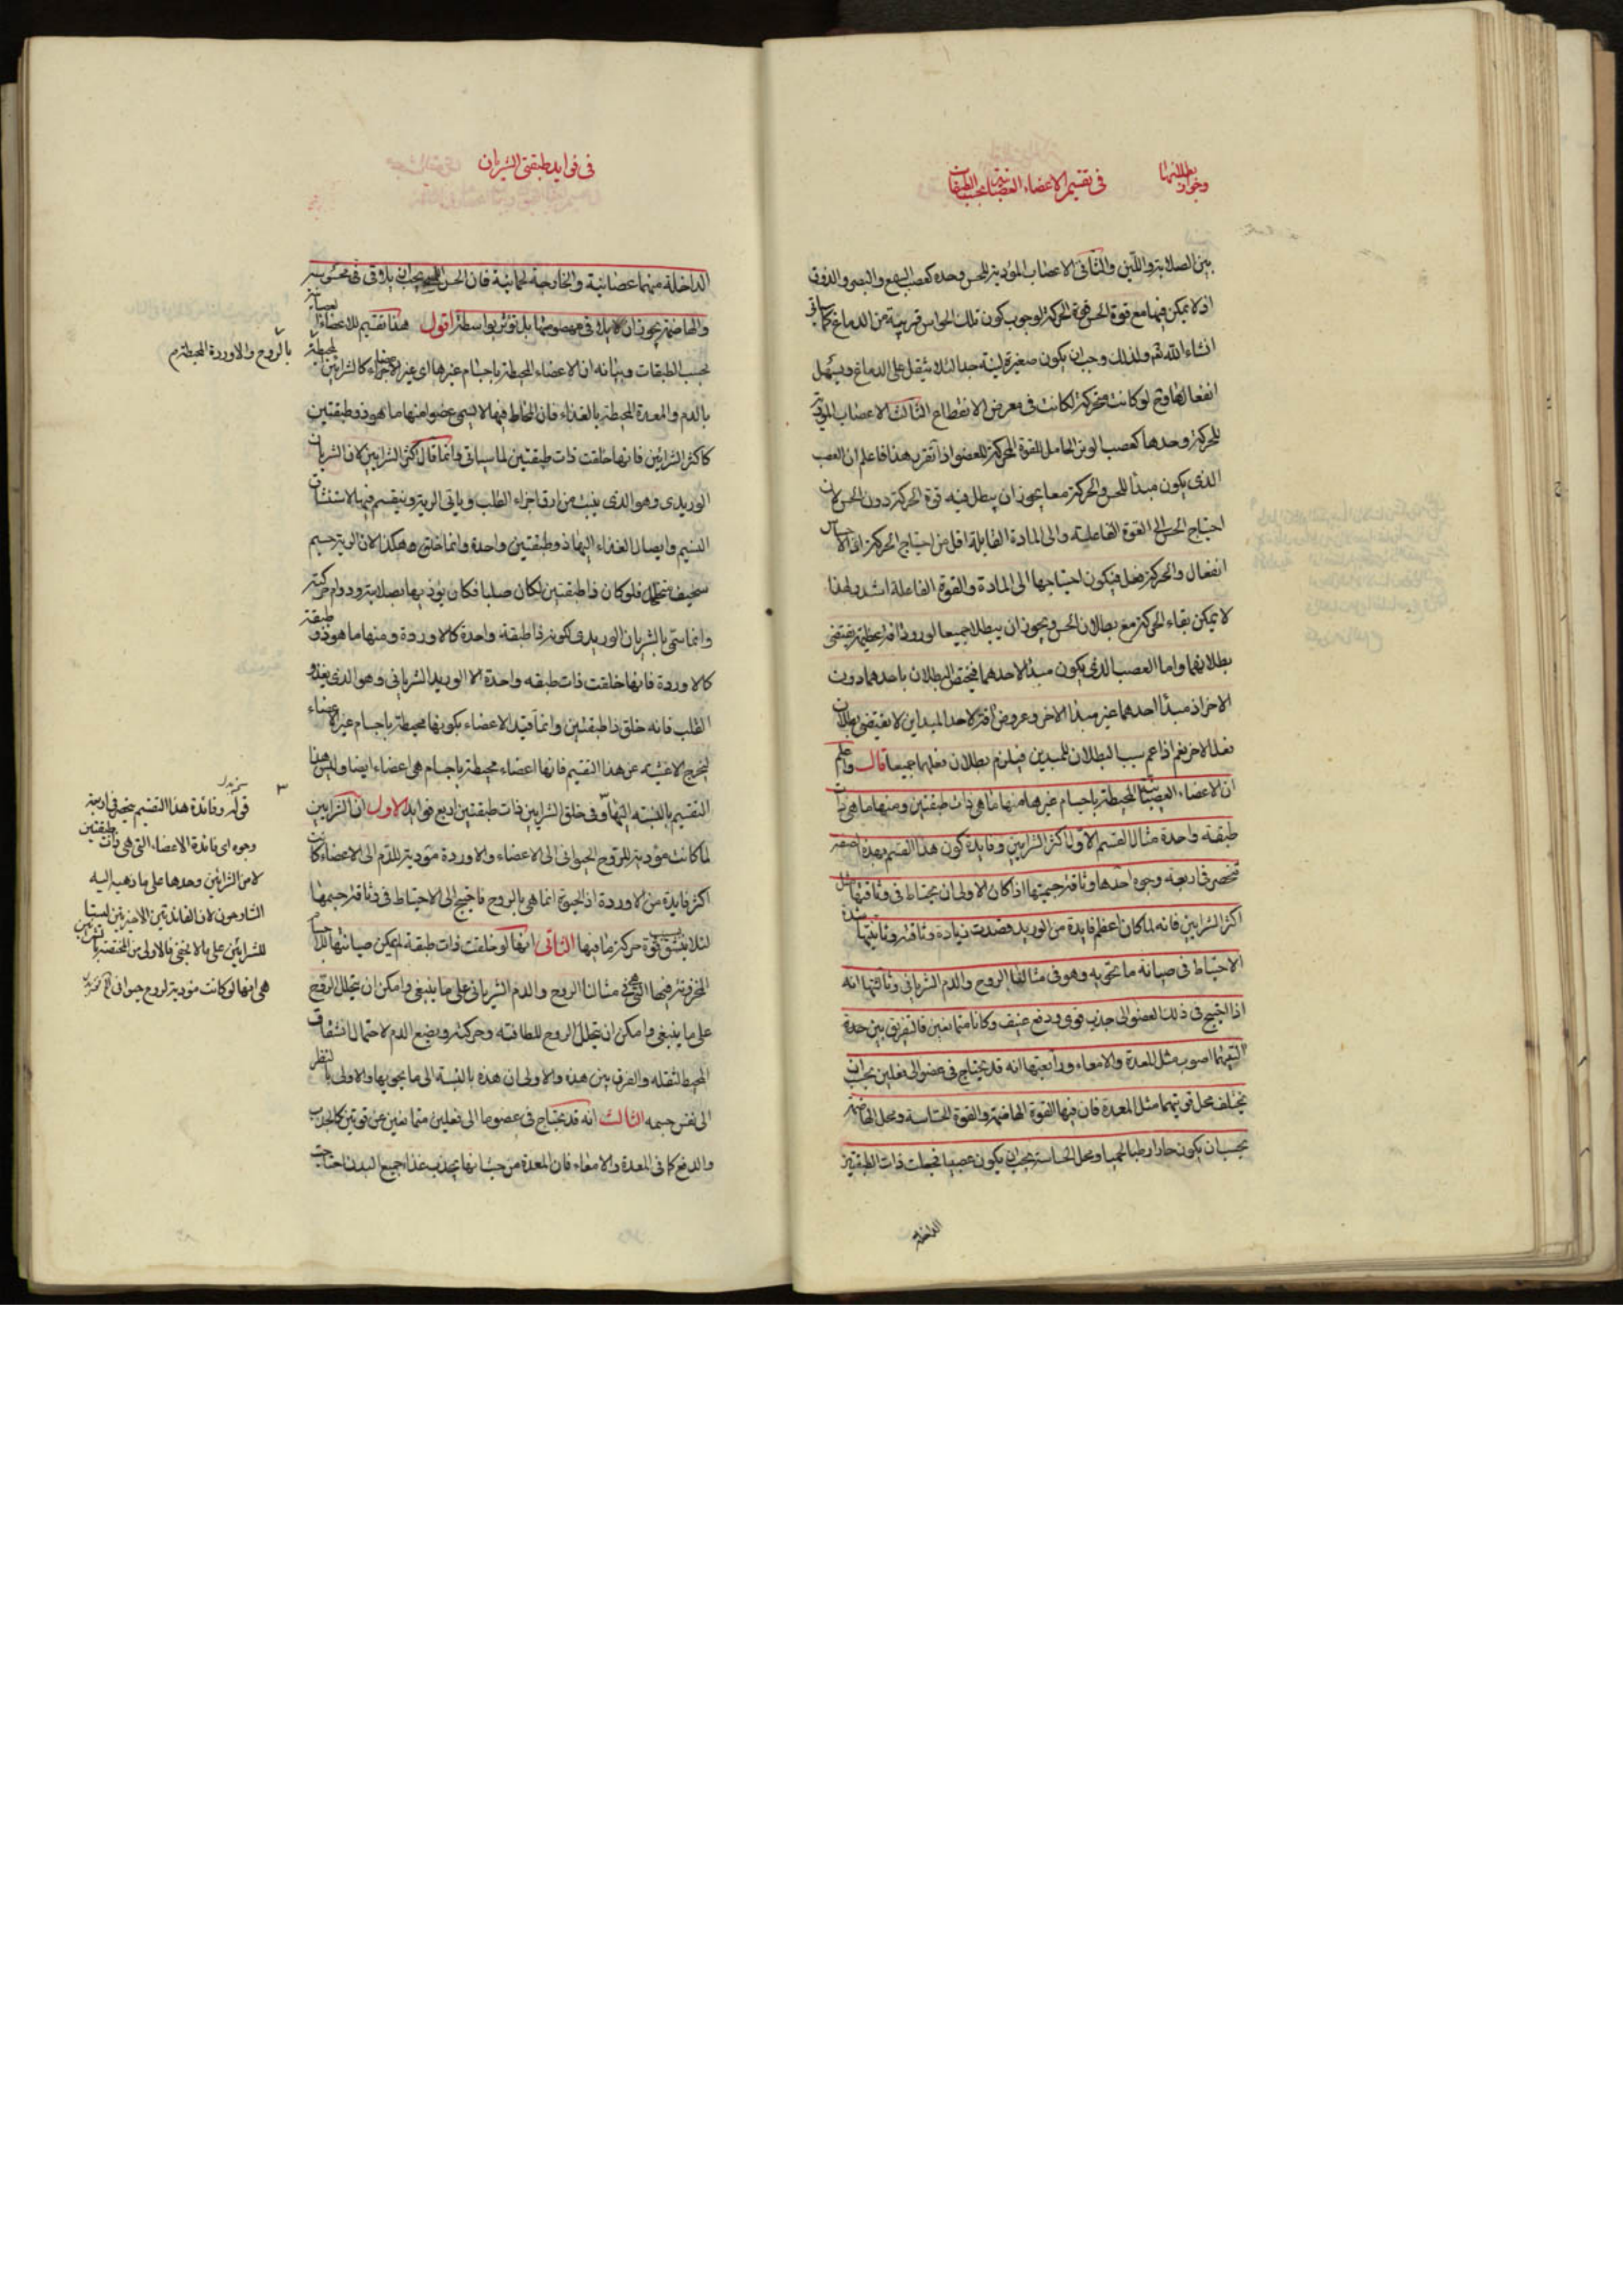 في تقسيم الاعضاء العصبانية بحسب الطبقات
بين الصلابة واللين والثاني الاعصاب المؤدية للحس وحده كعصب السمع والبصر والذوق
اذ لا يمكن فيها مع قوة الحس قوة الحركة لوجوب كون تلك الحواس قريبة من الدماغ كما سياتي
انشاء الله تم ولذلك وجب ان يكون صغيرة لينة جدا لئلا يثقل على الدماغ ويسهل
انفعالها وح لو كانت متحركة لكانت في معرض الانقطاع الثالث الاعصاب المؤدية
للحركة وحدها كعصب الوتر الحامل للقوة المحركة للعضو اذا تقرر هذا فاعلم ان العصب
الذي يكون مبدئا للحس والحركة معا يجوز ان يبطل فيه قوة الحركة دون الحس لان
احتياج الحس الى القوة الفاعلية والى المادة القابلة اقل من احتياج الحركة اذ الاحساس
انفعال والحركة فعل فيكون احتياجها الى المادة والقوة الفاعلة اشد ولهذا
لا يمكن بقاء الحركة مع بطلان الحس ويجوز ان يبطلا جميعا لورود افة عظيمة يقتضى
بطلانهما واما العصب الذي يكون مبدئا لاحدهما فيختص البطلان باحدهما دون
الاخر اذ مبدأ احدهما غير مبدأ الاخر وعروض افة لاحد المبداين لا يقتضى بطلان
فعل الاخر نعم اذا عم سبب البطلان للمبدين فيلزم بطلان فعلهما جميعا قال واعلم
ان الاعضاء العصبانية المحيطة باجسام غيرها منها ما هي ذات طبقتين ومنها ما هي ذات
طبقة واحدة مثال القسم الاول اكثر الشرايين وفايدة كون هذا القسم بهذه الصفة
تنحصر في اربعة وجوه احدها وثاقة جسميتها اذا كان الاولى ان يحتاط في وثاقتها مثل
اكثر الشرايين فانه لما كان اعظم فايدة من الوريد قصدت زيادة وثاقته وثانيتها شدة
الاحتياط في صيانة ما يحتوى به وهو في مثالنا الروح والدم الشرياني وثالثتها انه
اذا احتيج في ذلك العضو الى جذب قوى ودفع عنيف وكانا متمانعين فالتفريق بين حدة
التيهما اصوب مثل المعدة والامعاء ورابعتها انه قد يحتاج في عضو الى فعلين يجب ان
يختلف محل قوتيهما مثل المعدة فان فيها القوة الهاضمة والقوة الحساسة ومحل الهاضمة
يجب ان يكون حارا رطبا لحميا ومحل الحساسة يجب ان يكون عصبيا فجعلت ذات الطبقتين
الداخلة
في فوايد طبقتى الشريان
الداخلة منهما عصبانية والخارجة لحمانية فان الحس اللمس يجب ان يلاقى في محسوسه
والهاضمة يجوز ان لا يلاقى مهضومها بل تؤثر بواسطة اقول هذا تقسيم للاعضاء العصبانية
بحسب الطبقات وبيانه ان الاعضاء المحيطة باجسام غيرها اى غير الاعضاء كالشرايين المحيطة
بالروح والاوردة المحيطة م
بالدم والمعدة المحيطة بالغذاء فان المحاط فيها لا يسمى عضوا منها ما هو ذو طبقتين
كاكثر الشرايين فانها خلقت ذات طبقتين لما سياتي وانما قال اكثر الشرايين لان الشريان
الوريدى وهو الذى ينبت من ارق اجزاء القلب وياتى الرية وينقسم فيها لاستنشاق
النسيم وايصال الغذاء اليها ذو طبقة واحدة وانما خلق هكذا لان الرية جسم
سخيف متخلخل فلو كان ذا طبقتين لكان صلبا فكان يؤذيها بصلابته ودوام حركته
وانما سمى بالشريان الوريدى لكونه ذا طبقة واحدة كالاوردة ومنها ما هو ذو طبقة
كالاوردة فانها خلقت ذات طبقه واحدة الا الوريد الشرياني وهو الذى يغذو
القلب فانه خلق ذا طبقتين وانما قيد الاعضاء بكونها محيطة باجسام غير الاعضاء
ليخرج الاغشية عن هذا التقسيم فانها اعضاء محيطة باجسام هى اعضاء ايضا وليس هذا
التقسيم بالنسبة اليها وفى خلق الشرايين ذات طبقتين اربع فوايد الاول ان الشرايين
لما كانت مؤدية للروح الحيوانى الى الاعضاء والاوردة مؤدية للدم الى الاعضاء كانت
اكثر فايدة من الاوردة اذ الحيوة انما هى بالروح فاحتيج الى الاحتياط في وثاقة جسمها
لئلا ينشق بسبب قوة حركة ما فيها الثانى انها لو خلقت ذات طبقة لم يمكن صيانتها للاجسام
المخزونة فيها التى هى في مثالنا الروح والدم الشرياني على ما ينبغى وامكن ان يتحلل الروح
على ما ينبغى وامكن ان يتحلل الروح للطافته وحركته ويضيع الدم لاحتمال انشقاق
المحيط لثقله والفرق بين هذه والاولى ان هذه بالنسبة الى ما يحويها والاولى بالنظر
الى نفس جسمه الثالث انه قد يحتاج في عضو ما الى فعلين متمانعين عن قوتين كالجذب
والدفع كما في المعدة والامعاء فان المعدة من حيث انها يجذب غذا جميع البدن احتاجت
قوله وفائدة هذا التقسيم ينحصر في اربعة
وجوه اى فائدة الاعضاء التى هى ذات طبقتين
لا من الشرايين وحدها على ما ذهب اليه
الشارحون لان الفائدتين الاخيرتين ليستا
للشرايين على ما لا يخفى فالاولى من المختصة بالشرايين
هى انها لو كانت مؤدية لروح حيوانى